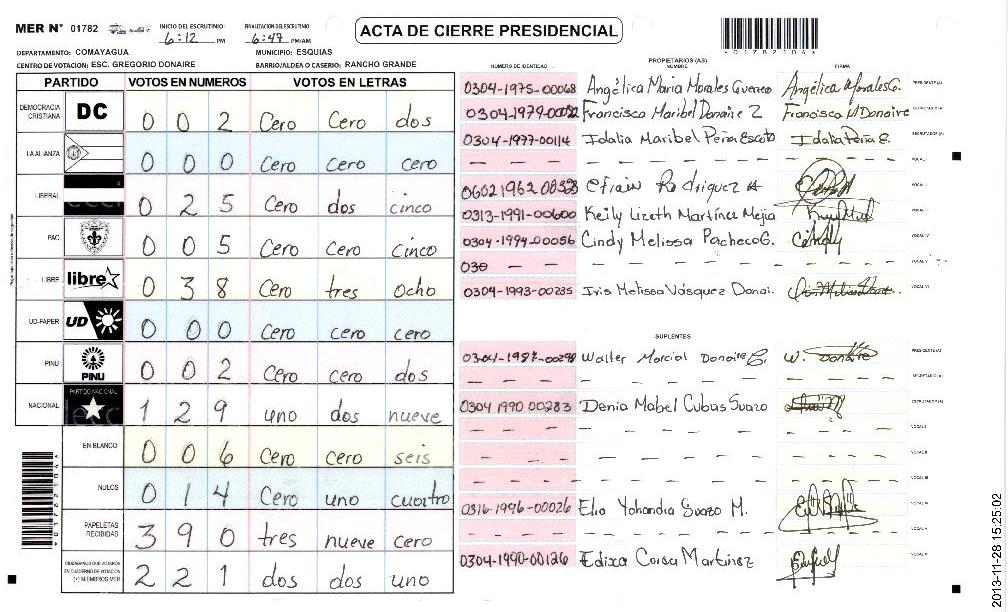 MER N° 01782
INICIO DEL ESCRUTINIO
6:12 PM
FINALIZACION DEL ESCRUTINIO
6:47 PM/AM
ACTA DE CIERRE PRESIDENCIAL
*01782104*
DEPARTAMENTO: COMAYAGUA
MUNICIPIO: ESQUIAS
CENTRO DE VOTACION: ESC. GREGORIO DONAIRE
BARRIO/ALDEA O CASERIO: RANCHO GRANDE
PARTIDO VOTOS EN NUMEROS VOTOS EN LETRAS
DEMOCRACIA CRISTIANA DC 0 0 2 Cero Cero dos
LA ALIANZA 0 0 0 Cero cero cero
LIBERAL 0 2 5 Cero dos cinco
PAC 0 0 5 Cero Cero cinco
LIBRE libre 0 3 8 Cero tres ocho
UD-FAPER UD 0 0 0 Cero cero cero
PINU PINU 0 0 2 Cero cero dos
NACIONAL PARTIDO NACIONAL 1 2 9 uno dos nueve
EN BLANCO 0 0 6 Cero cero seis
NULOS 0 1 4 Cero uno cuatro
PAPELETAS RECIBIDAS 3 9 0 tres nueve cero
CIUDADANOS QUE VOTARON EN CUADERNO DE VOTACION (+) MIEMBROS MER 2 2 1 dos dos uno
PROPIETARIOS (AS)
NUMERO DE IDENTIDAD NOMBRE FIRMA
0304-1975-00068 Angélica Maria Morales Angélica Morales G. PRESIDENTE(A)
0304-1979- Francisca Maribel Donaire Z Francisca M Donaire SECRETARIO(A)
0304-1977-00114 Idalia Maribel Peña Escoto Idalia Peña E. ESCRUTADOR(A)
– – – – – – – – – VOCAL I
0602 1962 Efrain Rodriguez A VOCAL II
0313-1991-00600 Keily Lizeth Martínez Mejia
0304-1994-00056 Cindy Melissa Pacheco G. Cindy VOCAL IV
030 – – – – – – – – VOCAL V
0304-1993-00235 Iris Melissa Vásquez Donai. VOCAL VI
SUPLENTES
0304-1987- Walter Marcial Donaire W. Donaire PRESIDENTE(A)
– – – – – – – – – SECRETARIO(A)
0304 1990 00283 Denia Mabel Cubas Suazo ESCRUTADOR(A)
– – – – – – – – – VOCAL I
– – – – – – – – – VOCAL II
– – – – – – – – – VOCAL III
0316-1996-00026 Yohandra Suazo M.
– – – – – – – – – VOCAL V
0304-1990-00126 Edixa Martinez
*01782104*
2013-11-28 15:25:02